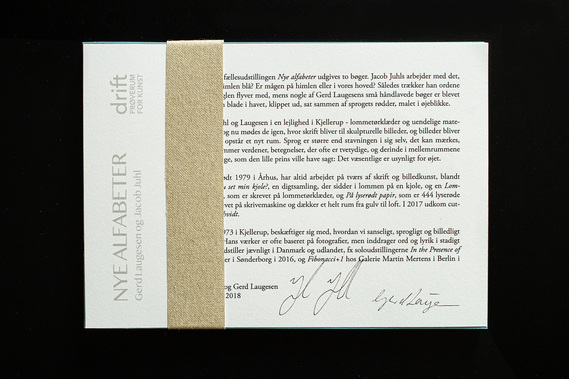 drift
PRØVERUM
FOR KUNST
NYE ALFABETER
Gerd Laugesen og Jacob Juhl
fællesudstillingen Nye alfabeter udgives to bøger. Jacob Juhls arbejder med det,
himlen blå? Er mågen på himlen eller i vores hoved? Således trækker han ordene
glen flyver med, mens nogle af Gerd Laugesens små håndlavede bøger er blevet
blade i havet, klippet ud, sat sammen af sprogets rødder, malet i øjeblikke.
hl og Laugesen i en lejlighed i Kjellerup - lommetørklæder og uendelige mate-
og nu mødes de igen, hvor skrift bliver til skulpturelle billeder, og billeder bliver
opstår et nyt rum. Sprog er større end stavningen i sig selv, det kan mærkes,
mmer verdener, betegnelser, der ofte er tvetydige, og derinde i mellemrummene
ge, som den lille prins ville have sagt: Det væsentlige er usynligt for øjet.
født 1979 i Århus, har altid arbejdet på tværs af skrift og billedkunst, blandt
u set min kjole?, en digtsamling, der sidder i lommen på en kjole, og en Lom-
som er skrevet på lommetørklæder, og På lyserødt papir, som er 444 lyserøde
vet på skrivemaskine og dækket et helt rum fra gulv til loft. I 2017 udkom cut-
hvidt.
973 i Kjellerup, beskæftiger sig med, hvordan vi sanseligt, sprogligt og billedligt
Hans værker er ofte baseret på fotografier, men inddrager ord og lyrik i stadigt
dstiller jævnligt i Danmark og udlandet, fx soloudstillingerne In the Presence of
er i Sønderborg i 2016, og Fibonacci+1 hos Galerie Martin Mertens i Berlin i
og Gerd Laugesen
2018